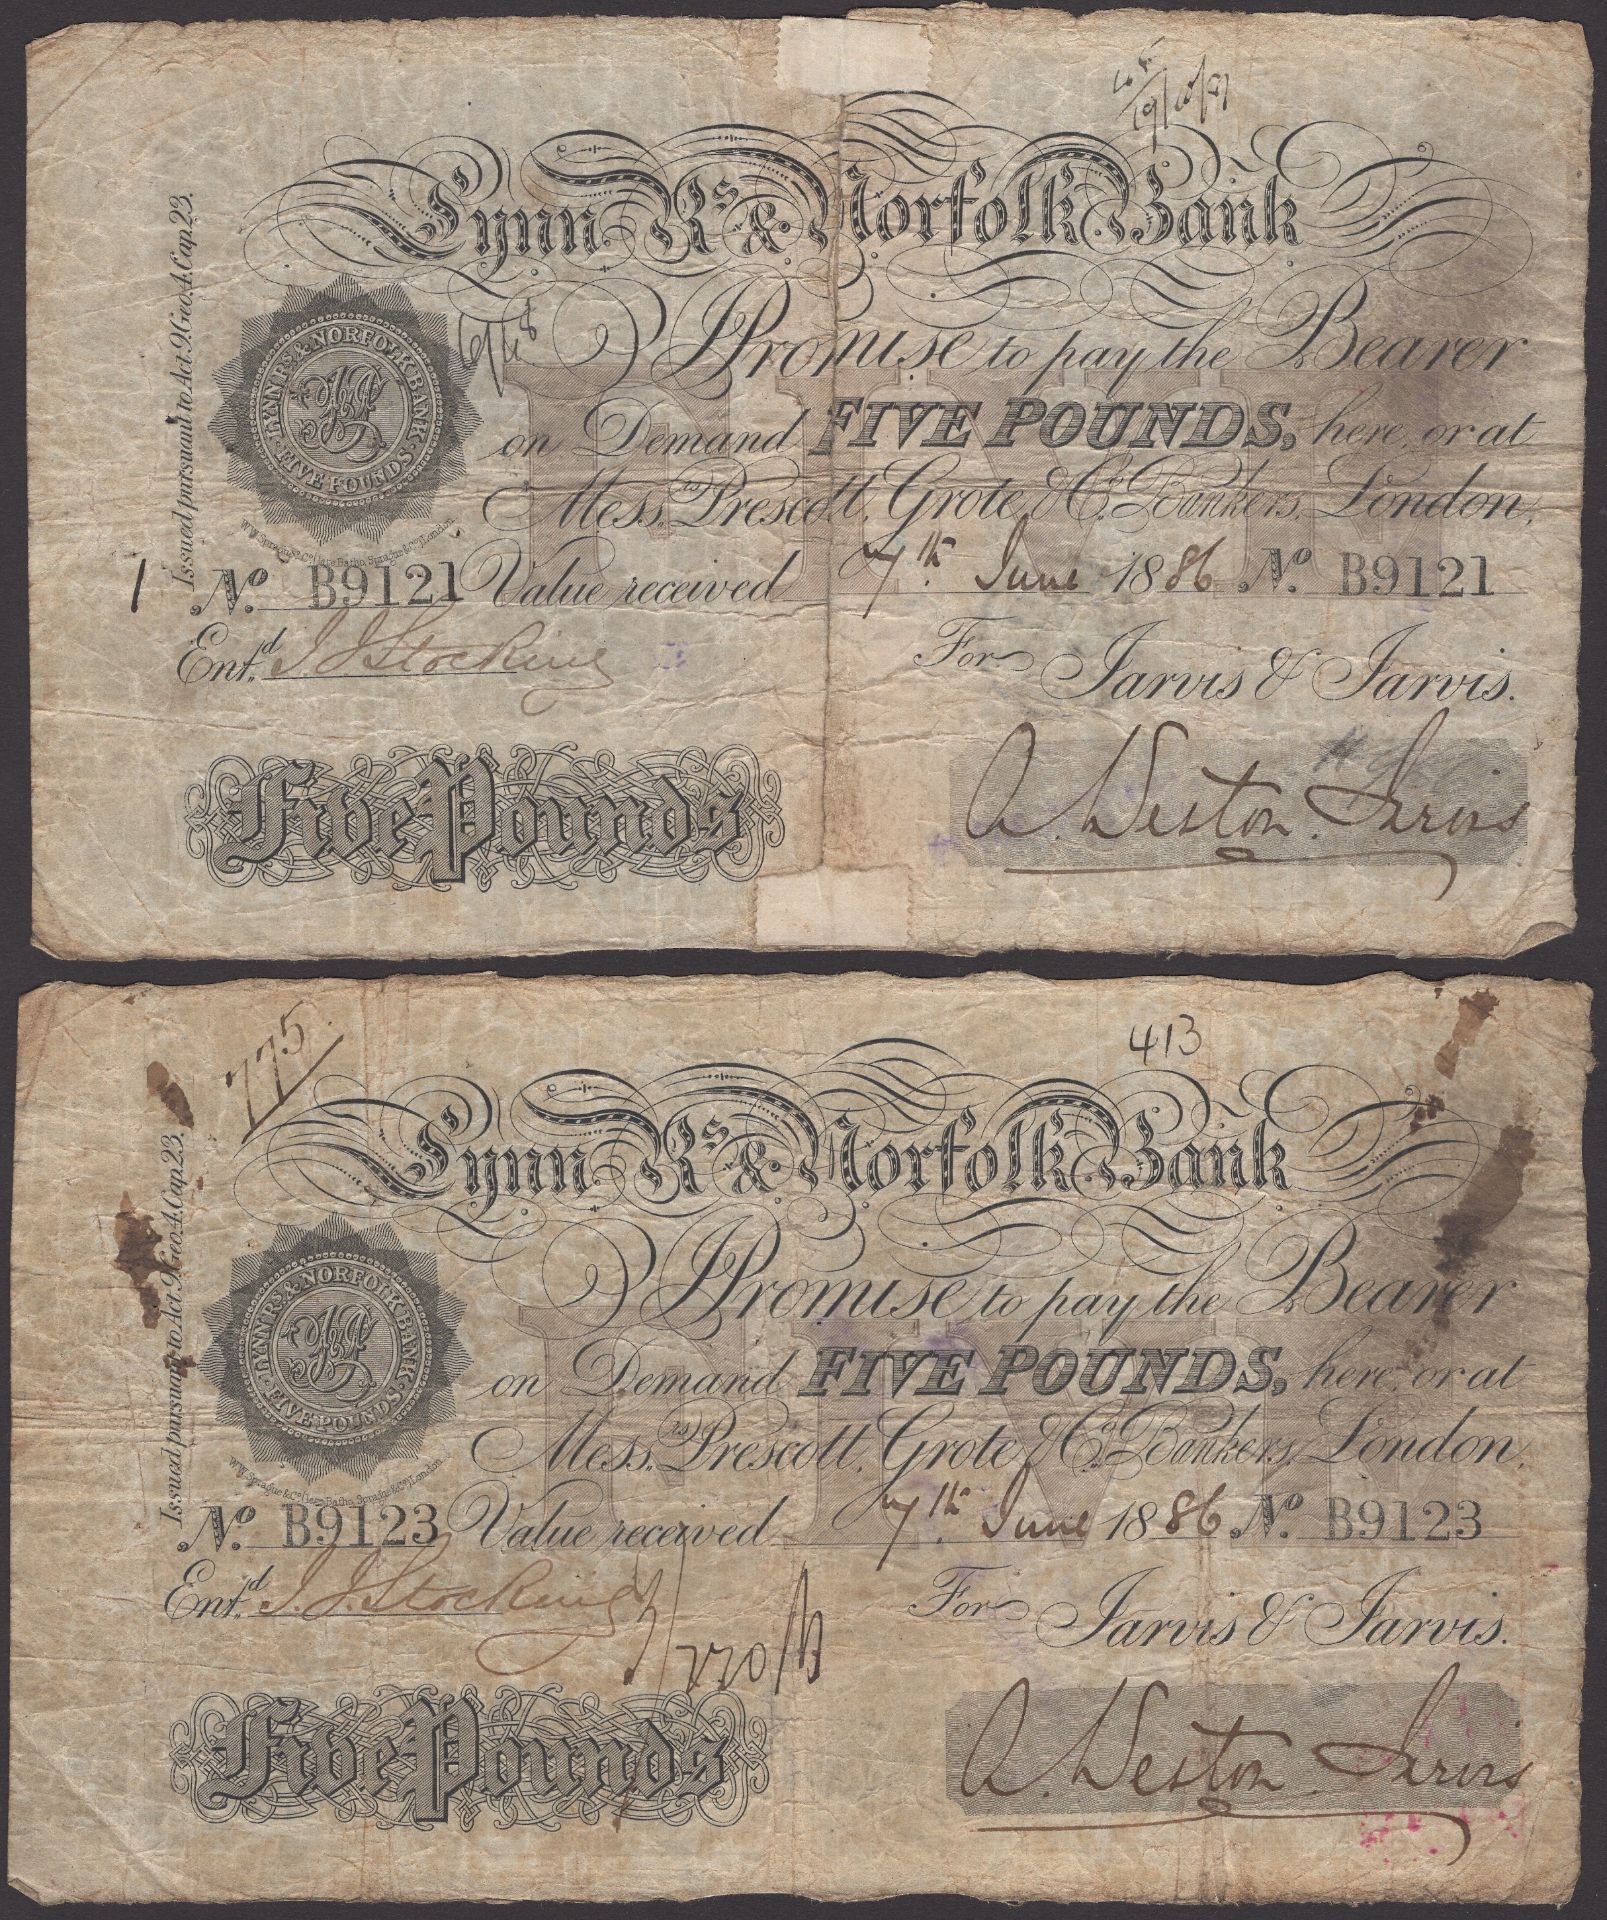 19/10/87
Lynn Rs. & Norfolk Bank
Issued pursuant to Act. 9. Geo. 4. Cap. 23.
LYNN RS & NORFOLK BANK · FIVE POUNDS ·
I Promise to pay the Bearer
on Demand FIVE POUNDS, here, or at
Messrs. Prescott, Grote, & Co. Bankers, London,
W.W. Sprague & Co. (late Batho, Sprague & Co.) London.
1 No. B9121 Value received 7th June 1886 No. B9121
Entd. J. J. Stocking For Jarvis & Jarvis.
Five Pounds A. Weston Jarvis
775 413
Lynn Rs. & Norfolk Bank
Issued pursuant to Act. 9. Geo. 4. Cap. 23.
LYNN RS & NORFOLK BANK · FIVE POUNDS ·
I Promise to pay the Bearer
on Demand FIVE POUNDS, here, or at
Messrs. Prescott, Grote, & Co. Bankers, London,
W.W. Sprague & Co. (late Batho, Sprague & Co.) London.
No. B9123 Value received 7th June 1886 No. B9123
Entd. J. J. Stocking For Jarvis & Jarvis.
Five Pounds A. Weston Jarvis